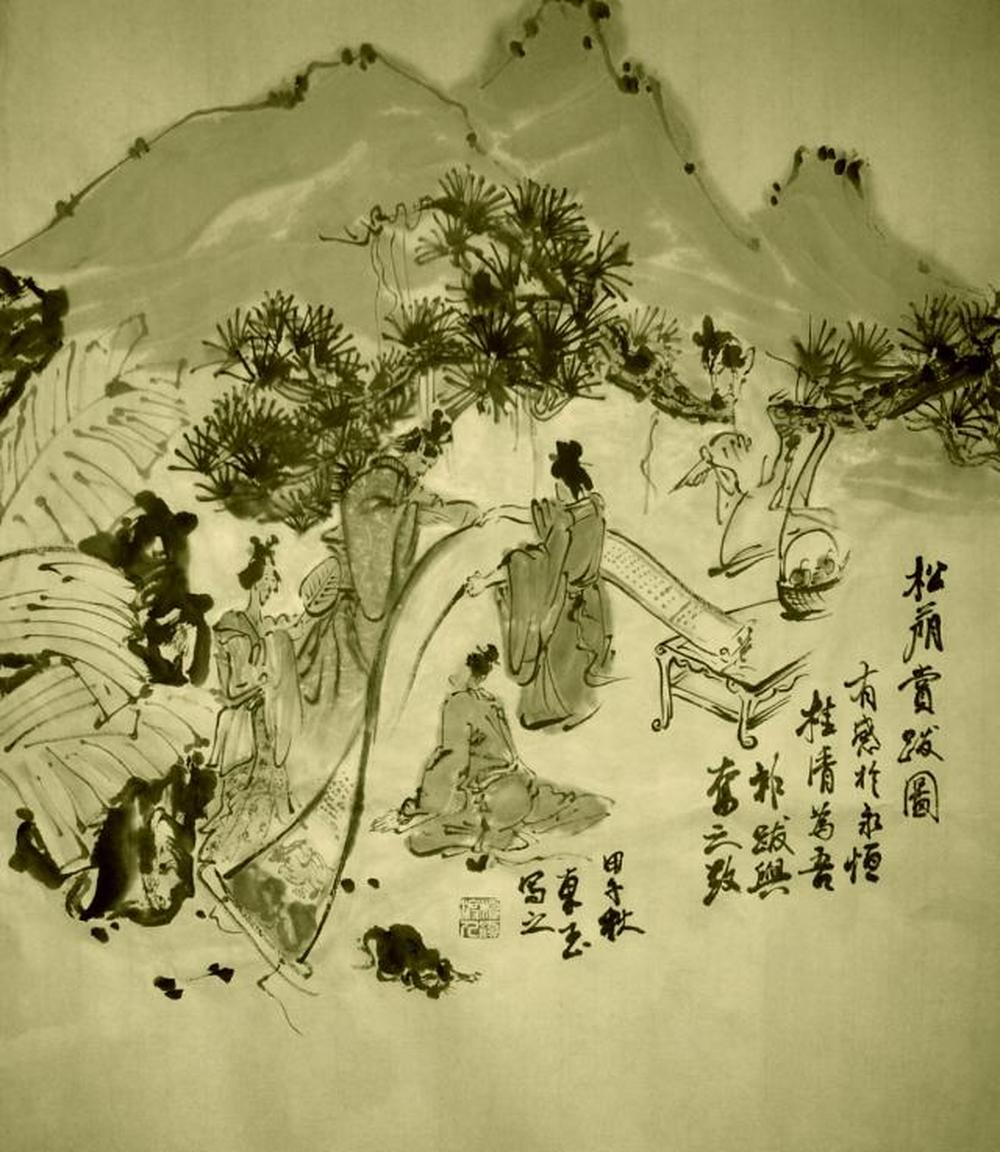 松蔭賞跋圖
有感於永恒
桂清為吾
祢跋與
奮之致
甲午秋
東玉
寫之